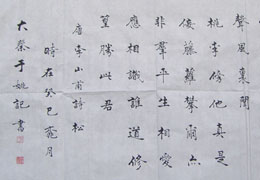 聲風裏聞
桃李傍他真是
佞藤蘿攀爾亦
非羣平生相愛
應相識誰道修
篁勝此君
唐李山甫詩松
時在癸巳月
大蔡于姚記書